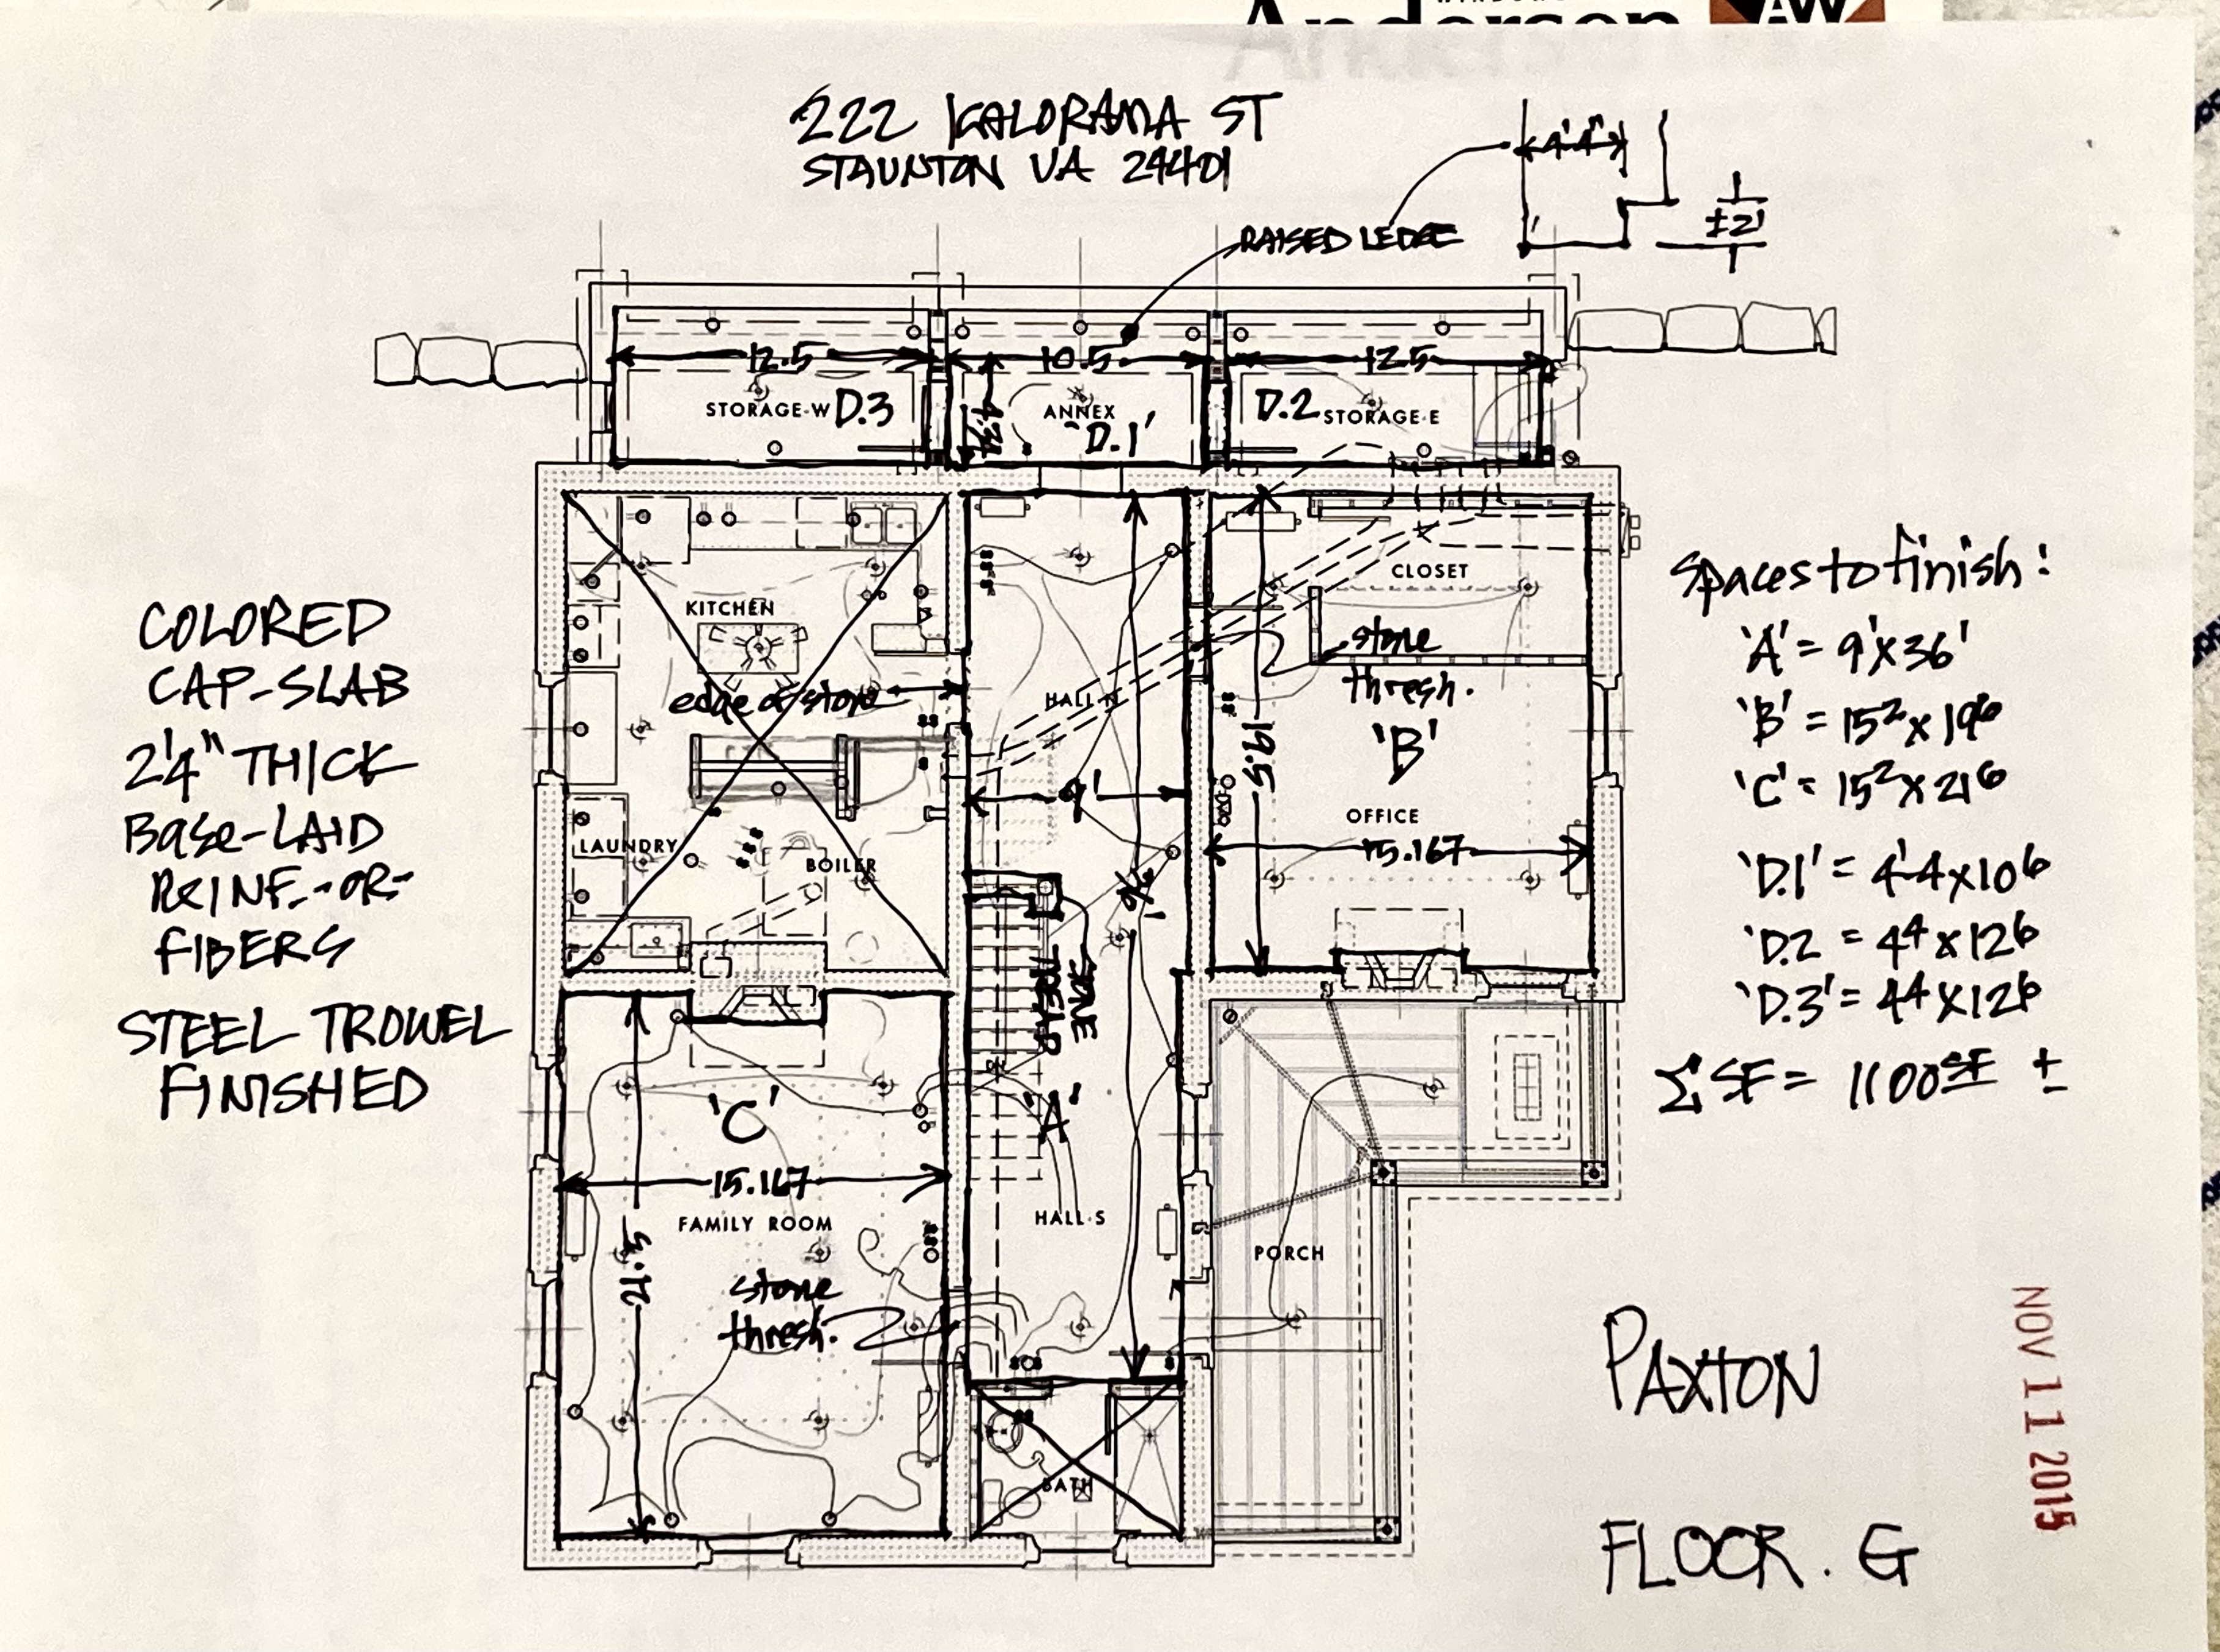 Andersen
AW
222 KALORAMA ST
STAUNTON VA 24401
4'4"
±2'
RAISED LEDGE
12.5
10.5
12.5
STORAGE-W D.3
ANNEX
'D.1'
D.2 STORAGE-E
COLORED
CAP-SLAB
2'4" THICK
Base-LAID
REINF.-OR-
FIBERS
STEEL TROWEL
FINISHED
KITCHEN
edge of stone
LAUNDRY
BOILER
HALL N
9'
36'
CLOSET
stone
thresh.
'B'
19.5
OFFICE
15.167
STONE
TREAD
'C'
15.167
FAMILY ROOM
21.5
stone
thresh.
'A'
HALL S
PORCH
BATH
Spaces to finish:
'A' = 9'x36'
'B' = 15² x 19⁶
'C' = 15² x 21⁶
'D.1' = 4'4 x 10⁶
'D.2 = 4⁴ x 12⁶
'D.3' = 4⁴ x 12⁶
Σ SF = 1100 SF ±
PAXTON
FLOOR. G
NOV 11 2015